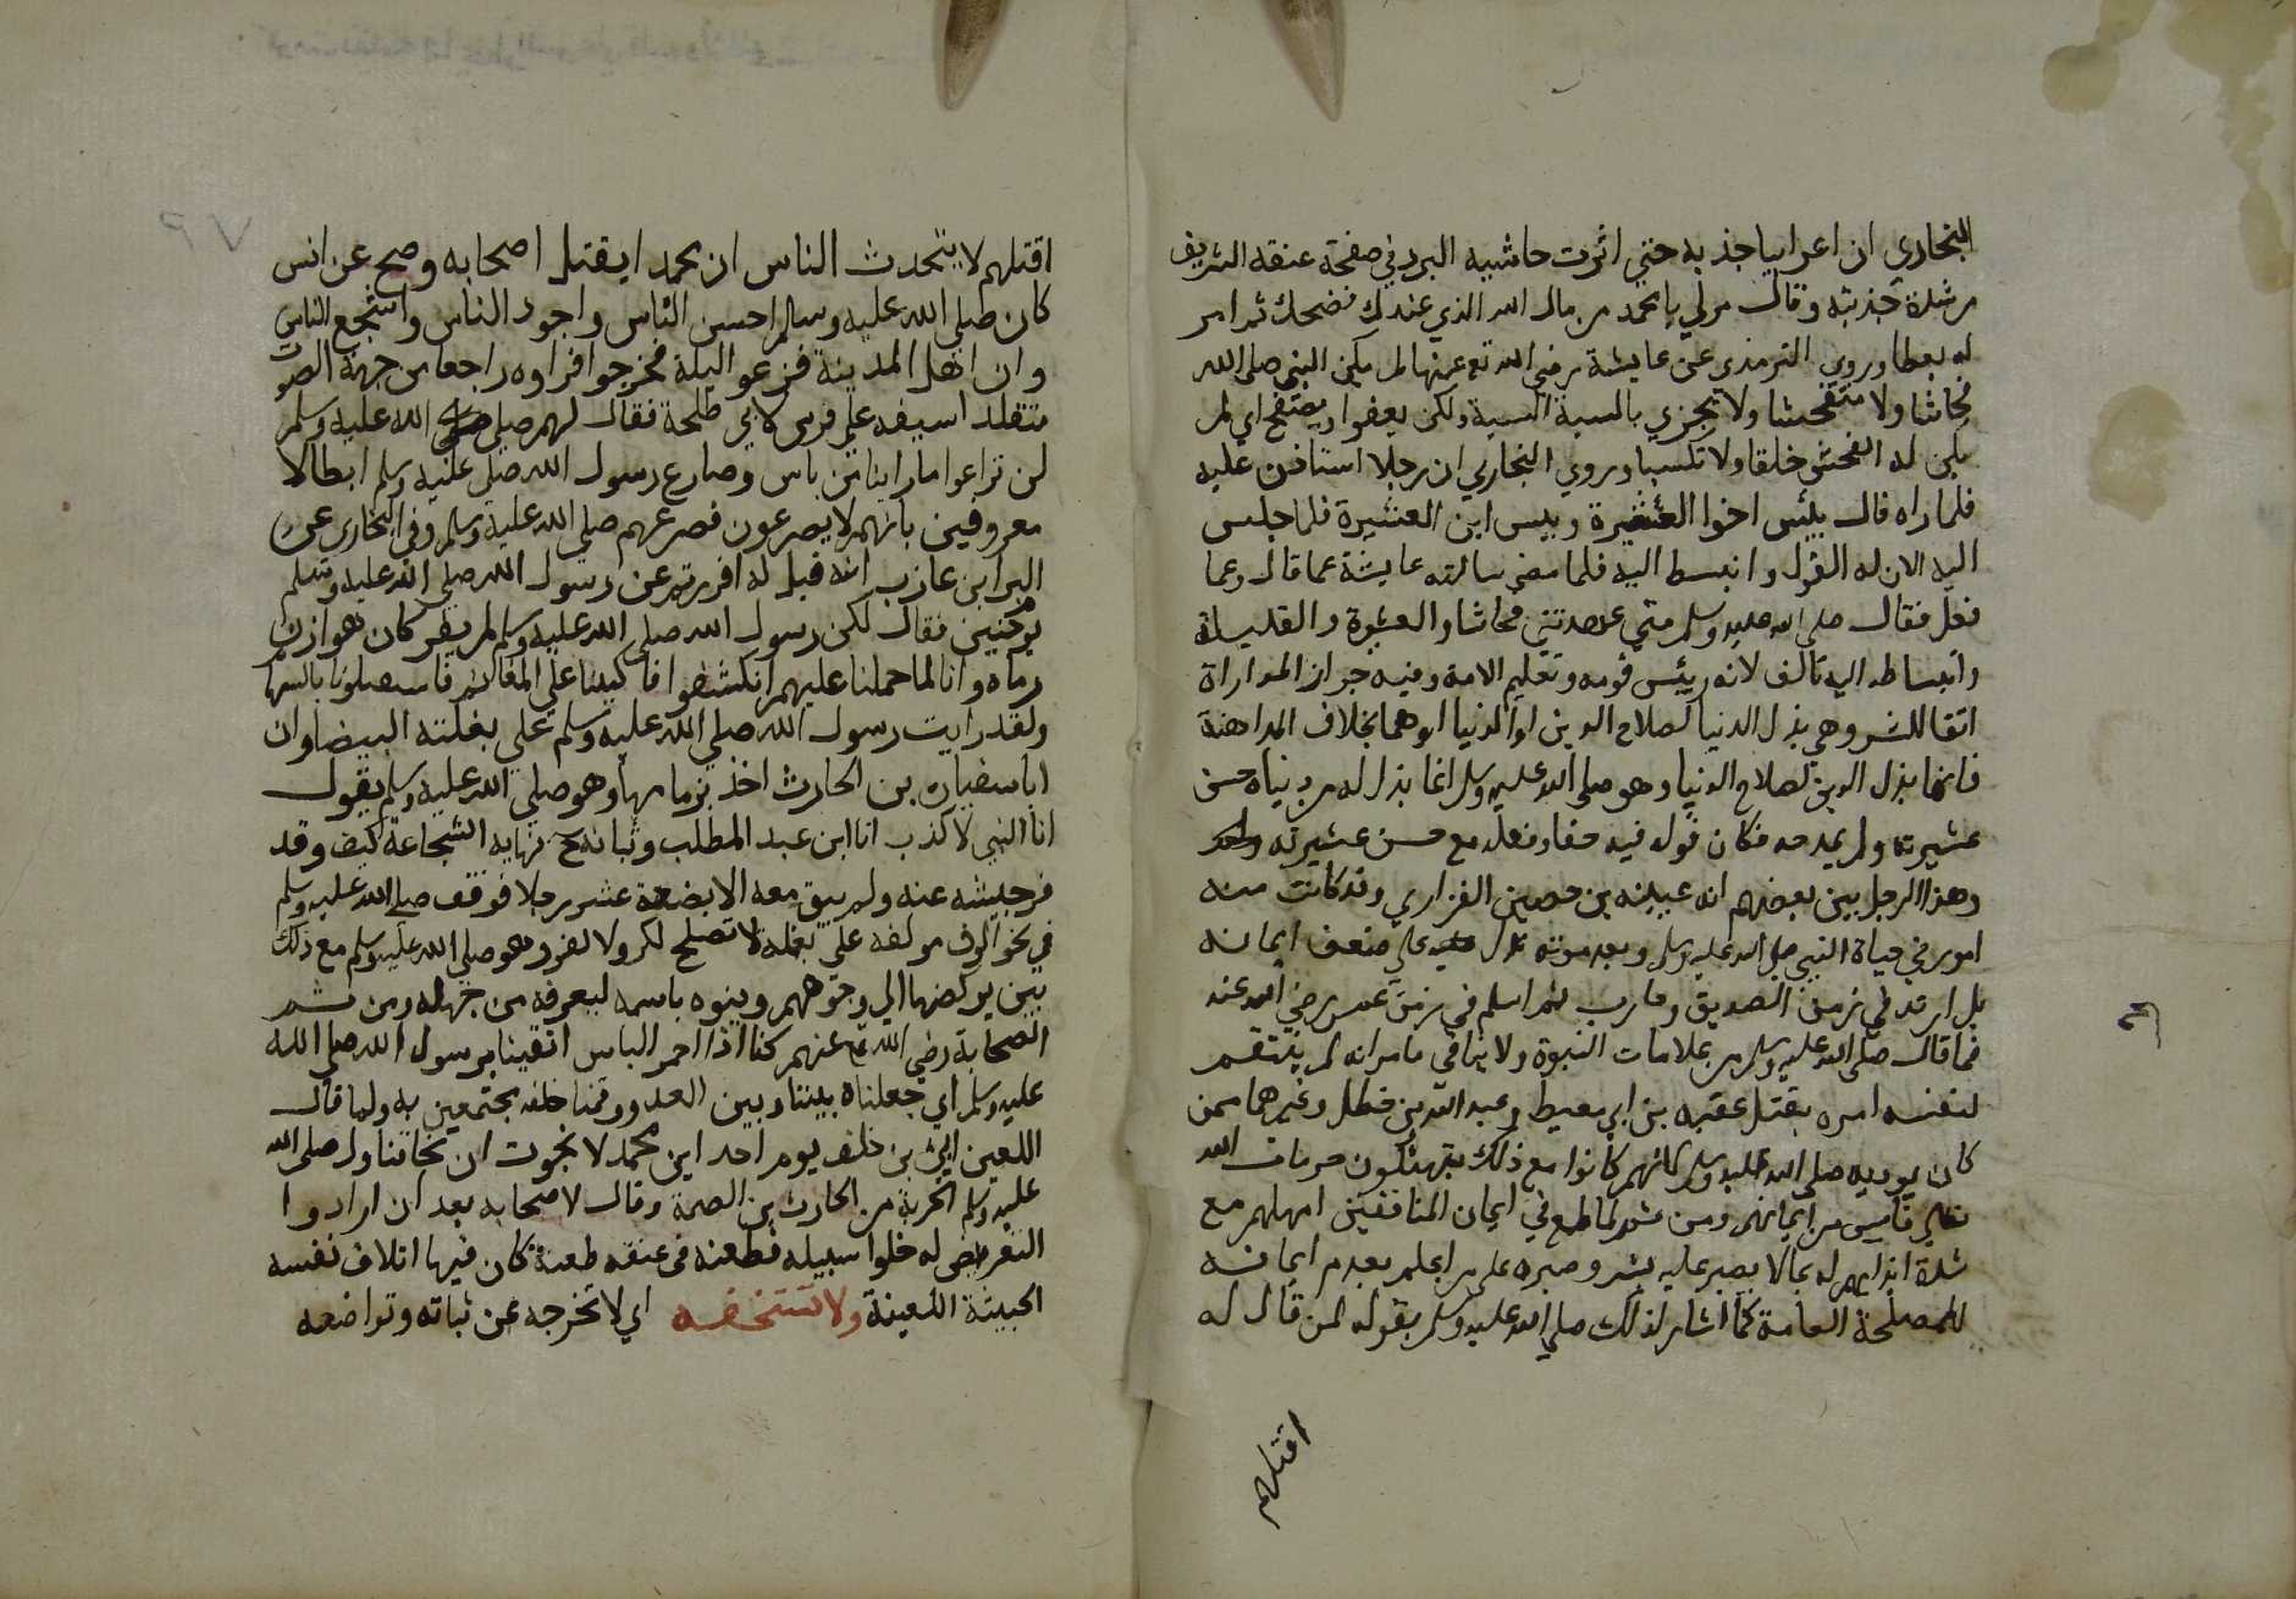 البخاري ان اعرابيا جذبه حتي اثرت حاشيه البرد في صفحة عنقه الشريف
من شدة جذبته وقال مر لي يا محمد من مال الله الذي عندك فضحك ثم امر
له بعطا وروي الترمذي عن عايشة رضي الله تع عنها لم يكن النبي صلي الله
فحاشا ولا متفحشا ولا يجزي بالسية السية ولكن يعفوا ويصفح اي لم
يكن له الفحش خلقا ولا تكسبا وروي البخاري ان رجلا استاذن عليه
فلما راه قال بيئس اخوا العشيرة وبيس ابن العشيرة فلما جلس
اليه الان له القول وانبسط اليه فلما مضي سالته عايشة عما قال وعما
فعل فقال صلي الله عليه وسلم متي عهدتني فحاشا والعشيرة والقبيلة
وانبساطه اليه تالف لانه رييس قومه وتعليم الامة وفيه جواز المداراة
اتقا للشر وهي بذل الدنيا لصلاح الدين او الدنيا او هما بخلاف المداهنة
فانها بذل الدين لصلاح الدنيا وهو صلي الله عليه وسلم انما بذل له من دنياه حسن
عشيرته ولم يمدحه فكان قوله فيه حقا وفعله مع حسن عشيرته
وهذا الرجل بين بعضهم انه عيينه بن حصين الفزاري وقد كانت منه
امور في حياة النبي صلي الله عليه وسلم وبعد موته تدل علي ضعف ايمانه
بل ارتد في زمن الصديق وحارب ثم اسلم في زمن عمر رضي الله عنه
فما قال صلي الله عليه وسلم من علامات النبوة ولا ينافي ما مر انه لم ينتقم
لنفسه امره بقتل عقبه بن ابي معيط وعبد الله بن خطل وغيرهما ممن
كان يوديه صلي الله عليه وسلم لانهم كانوا مع ذلك ينتهكون حرمات الله
فلم يتاسي من ايمانهم ومن ثم لما طمع في ايمان المنافقين امهلهم مع
شدة ايذايهم له بما لا يصبر عليه بشر وصبره علي من اعلم بعدم ايمانه
للمصلحة العامة كما اشار لذلك صلي الله عليه وسلم بقوله لمن قال له
اقتلهم
اقتلهم لا يتحدث الناس ان محمدا يقتل اصحابه وصح عن انس
كان صلي الله عليه وسلم احسن الناس واجود الناس واشجع الناس
وان اهل المدينة فزعوا ليلة فخرجوا فراوه راجعا من جهة الصوت
متقلدا سيفه علي فرس لابي طلحة فقال لهم صلي الله عليه وسلم
لن تراعوا ما راينا من باس وصارع رسول الله صلي عليه وسلم ابطالا
معروفين بانهم لا يصرعون فصرعهم صلي الله عليه وسلم وفي البخاري عن
البرا بن عازب انه قيل له افررتم عن رسول الله صلي الله عليه وسلم
يوم حنين فقال لكن رسول الله صلي الله عليه وسلم لم يفر كان هوازن
رماه وانا لما حملنا عليهم انكشفوا فاكببنا علي المغانم فاستقبلونا بالسهام
ولقد رايت رسول الله صلي الله عليه وسلم علي بغلته البيضا وان
ابا سفيان بن الحارث اخذ بزمامها وهو صلي الله عليه وسلم يقول
انا النبي لا كذب انا ابن عبد المطلب وثباته ح نهايه الشجاعة كيف وقد
فر جيشه عنه ولم يبق معه الا بضعة عشر رجلا فوقف صلي الله عليه وسلم
في نحو الوف مولفه علي بغله لا تصلح لكر ولا لفر وهو صلي الله عليه وسلم مع ذلك
بين يركضها الي وجوههم وينوه باسمه ليعرفه من جهله ومن ثم
الصحابة رضي الله تع عنهم كنا اذا احمر الباس اتقينا برسول الله صلي الله
عليه وسلم اي جعلناه بيننا وبين العدو وقمنا خلفه مجتمعين به ولما قال
اللعين ابي بن خلف يوم احد اين محمد لا نجوت ان نجا تناول صلي الله
عليه وسلم الحربة من الحارث بن الصمة وقال لاصحابه بعد ان ارادوا
التعرض له خلوا سبيله فطعنه في عنقه طعنة كان فيها اتلاف نفسه
الخبيثة اللعينة ولا تستخفه اي لا تخرجه عن ثباته وتواضعه